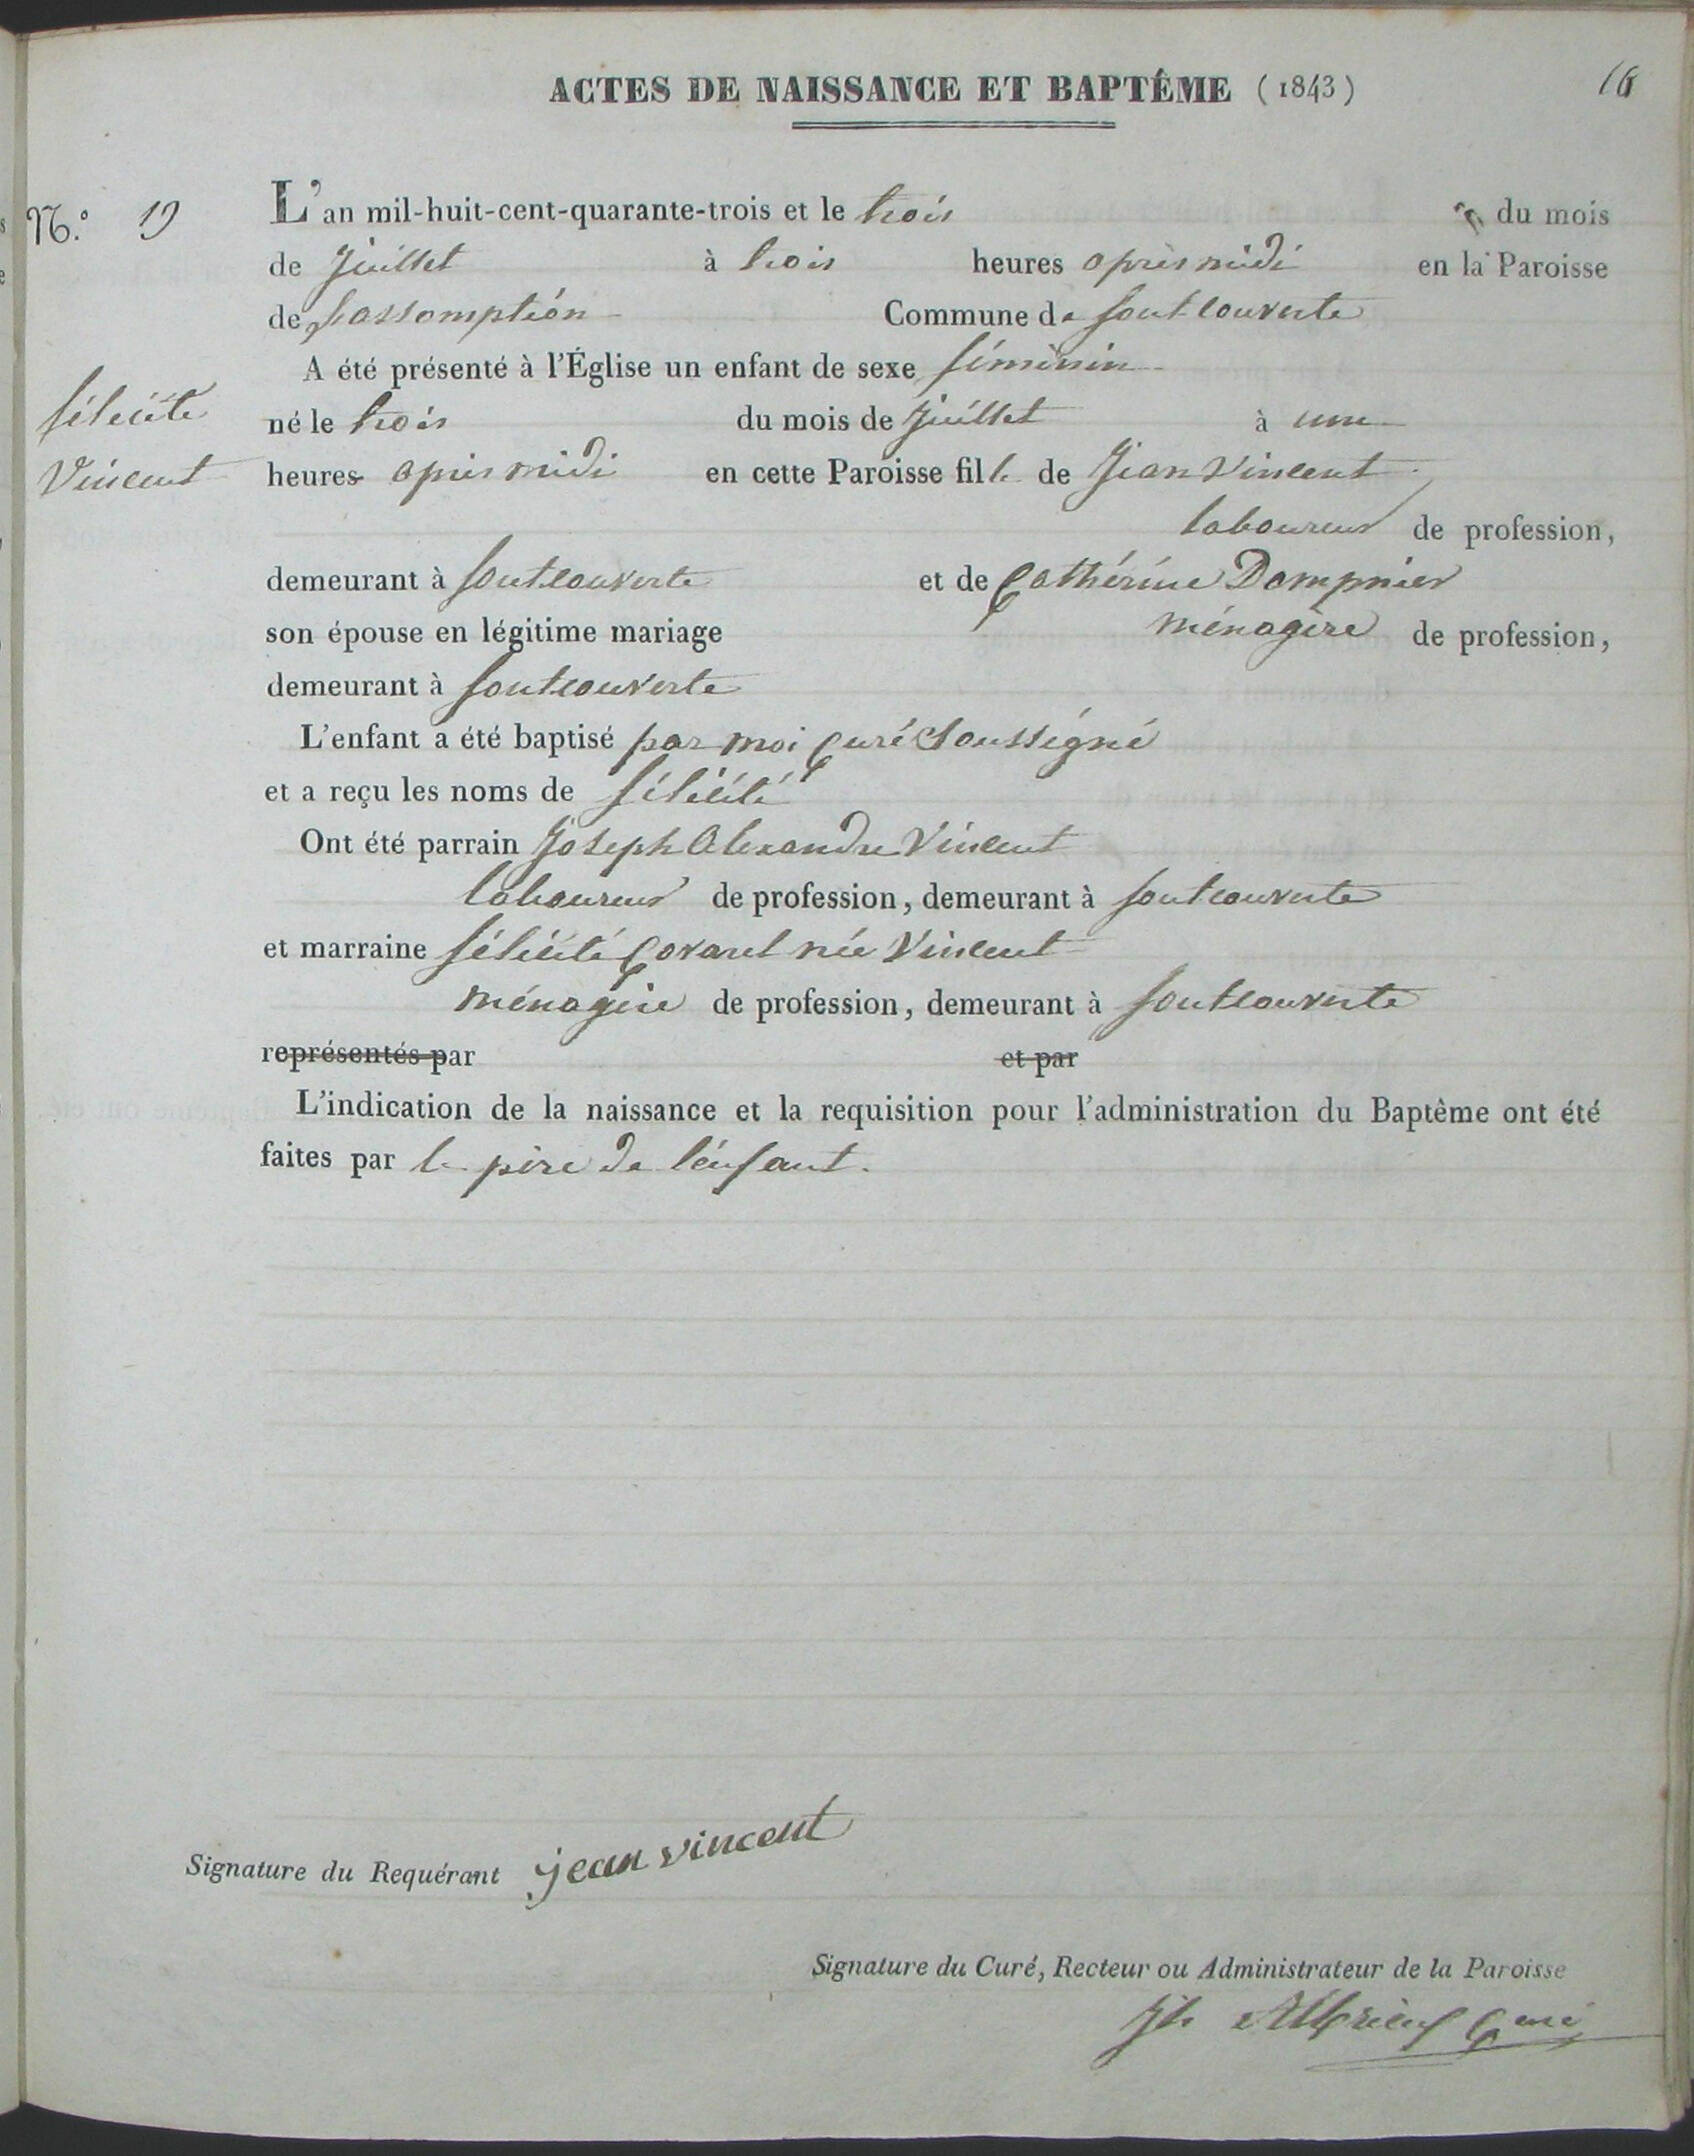 ACTES DE NAISSANCE ET BAPTÊME (1843)
16
N.° 19
L'an mil-huit-cent-quarante-trois et le trois du mois
de Juillet à trois heures après midi en la Paroisse
de l'assomption Commune de fontcouverte
A été présenté à l'Église un enfant de sexe féminin
félicité
né le trois du mois de Juillet à une
Vincent
heures après midi en cette Paroisse fille de Jean Vincent
laboureur de profession,
demeurant à fontcouverte et de Cathérine Dompnier
son épouse en légitime mariage ménagère de profession,
demeurant à fontcouverte
L'enfant a été baptisé par moi Curé Soussigné
et a reçu les noms de félicité
Ont été parrain Joseph Alexandre Vincent
laboureur de profession, demeurant à fontcouverte
et marraine félicité Covarel née Vincent
ménagère de profession, demeurant à fontcouverte
représentés par et par
L'indication de la naissance et la requisition pour l'administration du Baptême ont été
faites par le père de l'énfant.
Signature du Requérant jean vincent
Signature du Curé, Recteur ou Administrateur de la Paroisse
Curé